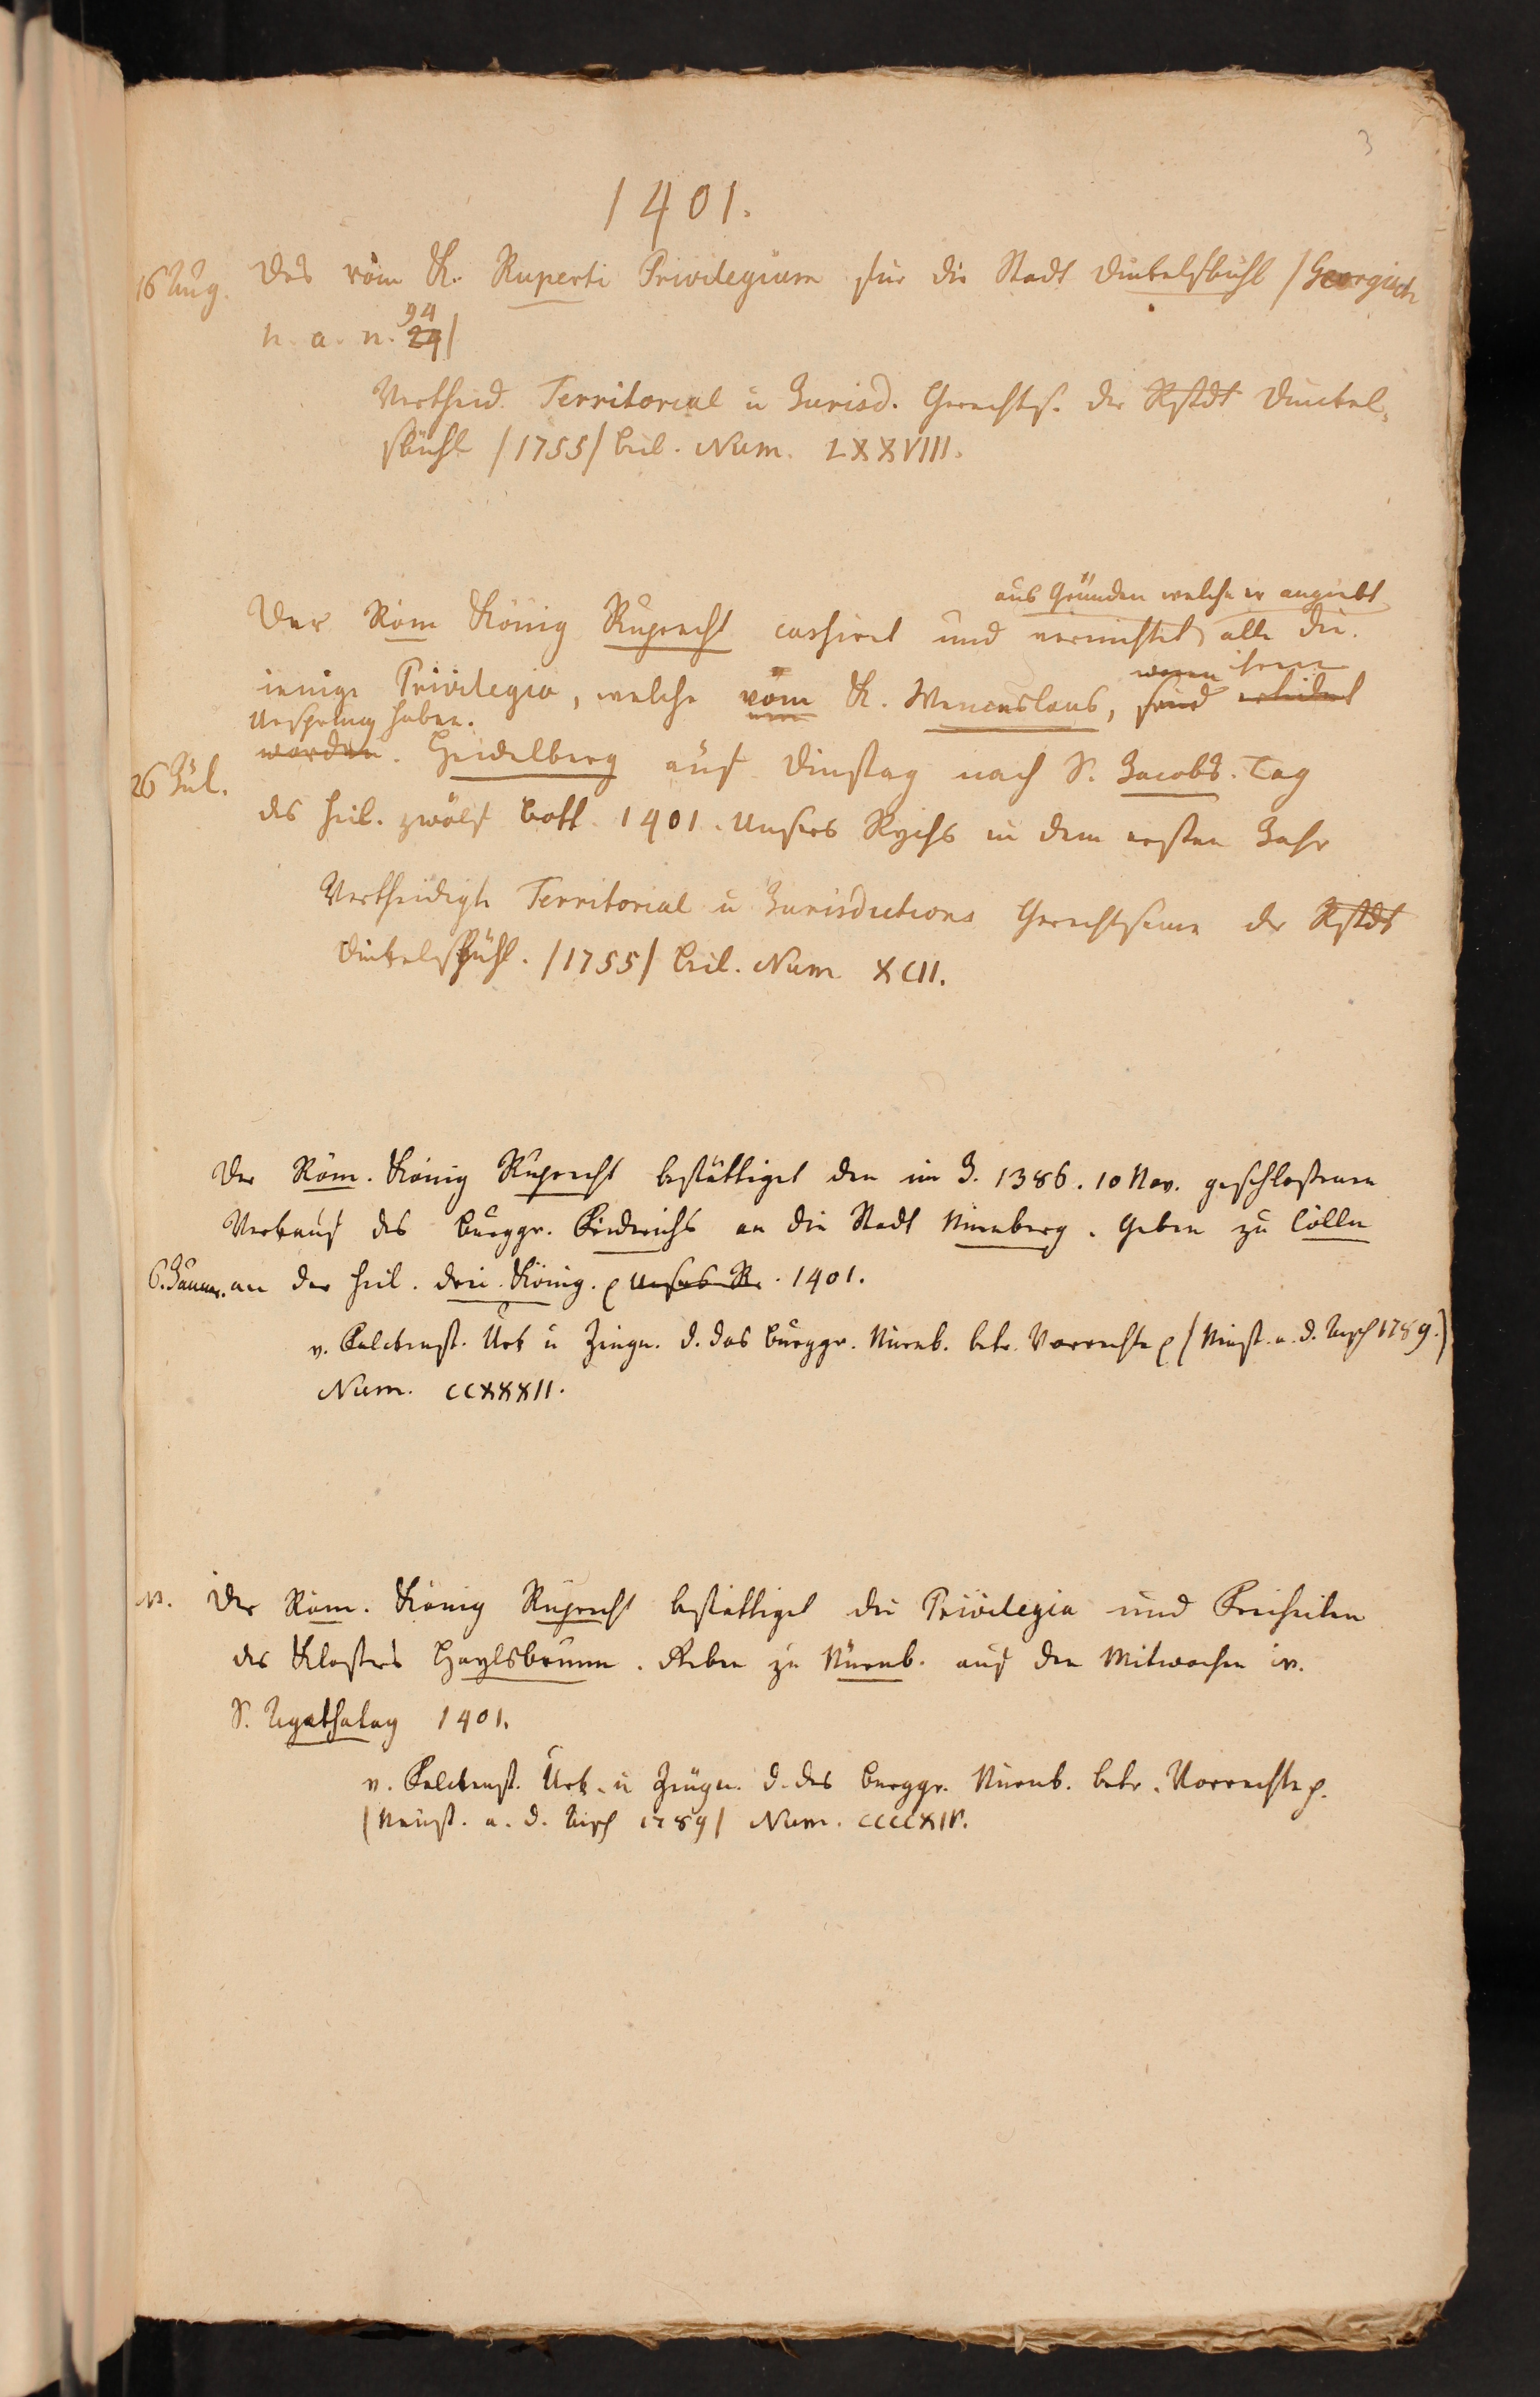 3
1401.
16 Aug. Des röm K. Ruperti Privilegium für die Stadt Dinkelsbühl /Georgisch
h. a. n. 24 94/
Vertheid. Territorial u Jurisd. Gerechts. der Rstdt Dinckel-
sbühl /1755/ Beil. Num. LXXVIII.
aus Gründen welche er angiebt
Der Röm König Ruprecht cassiret und vernichtet alle die-
ienige Privilegia, welche vom K. Wenceslaus, sind ertheilet
Ursprung haben.
26 Jul. worden. Heidelberg auf Dinstag nach S. Jacobs. Tag
des heil. zwölf Bott. 1401. Unsers Rychs in dem ersten Jahr
Vertheidigte Territorial u Jurisdictions Gerechtsame der Rstdt
Dinkelsbühl. /1755/ Beil. Num XCII.
Der Röm. König Ruprecht bestättiget den im J. 1386. 10 Nov. geschloßenen
Verkauf des Burggr. Fridrichs an die Stadt Nürnberg. Geben zu Cölln
6. Januar. an der heil. drei König. 1401.
v. Falckenst. Urk u Zeugn. d. das Burggr. Nürnb. betr. Vorrechte (Neust. a. d. Aysch 1789.)
Num. CCXXXII.
Der Röm. König Ruprecht bestättiget die Privilegia und Freiheiten
des Klosters Haylsbrunn. Geben zu Nürnb. auf den Mitwochen v.
S. Agathatag 1401.
v. Falckenst. Urk. u Zeugn. d. das Burggr. Nürnb. betr. Vorrechte
/Neust. a. d. Aisch 1789/ Num. CCCCXIV.